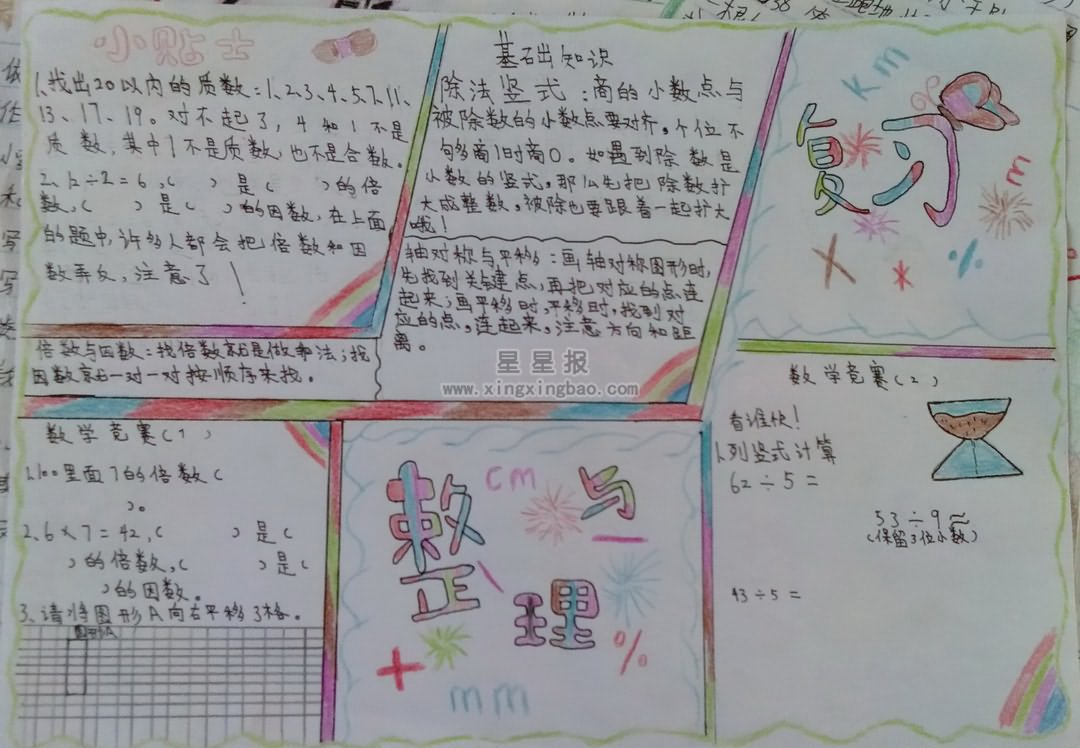 小贴士
1、找出20以内的质数:1、2、3、4、5、7、11、
13、17、19。对不起了,4和1不是
质数,其中1不是质数,也不是合数。
2、12÷2=6,( )是( )的倍
数,( )是( )的因数,在上面
的题中,许多人都会把倍数和因
数弄反,注意了!
倍数与因数:找倍数就是做乘法;找
因数就一对一对按顺序来找。
基础知识
除法竖式:商的小数点与
被除数的小数点要对齐。个位不
够商1时商0。如遇到除数是
小数的竖式,那么先把除数扩
大成整数,被除也要跟着一起扩大
哦!
轴对称与平移:画轴对称图形时,
先找到关键点,再把对应的点连
起来;画平移时,平移时,找到对
应的点,连起来,注意方向和距
离。
km
复习
m
× * ·/·
星星报
www.xingxingbao.com
数学竞赛(1)
1、100里面7的倍数(
)。
2、6×7=42,( )是(
)的倍数,( )是(
)的因数。
3、请将图形A向右平移3格。
图形A
整理与
cm
−
+
%
mm
数学竞赛(2)
看谁快!
1、列竖式计算
62÷5=
53÷9≈
(保留3位小数)
43÷5=